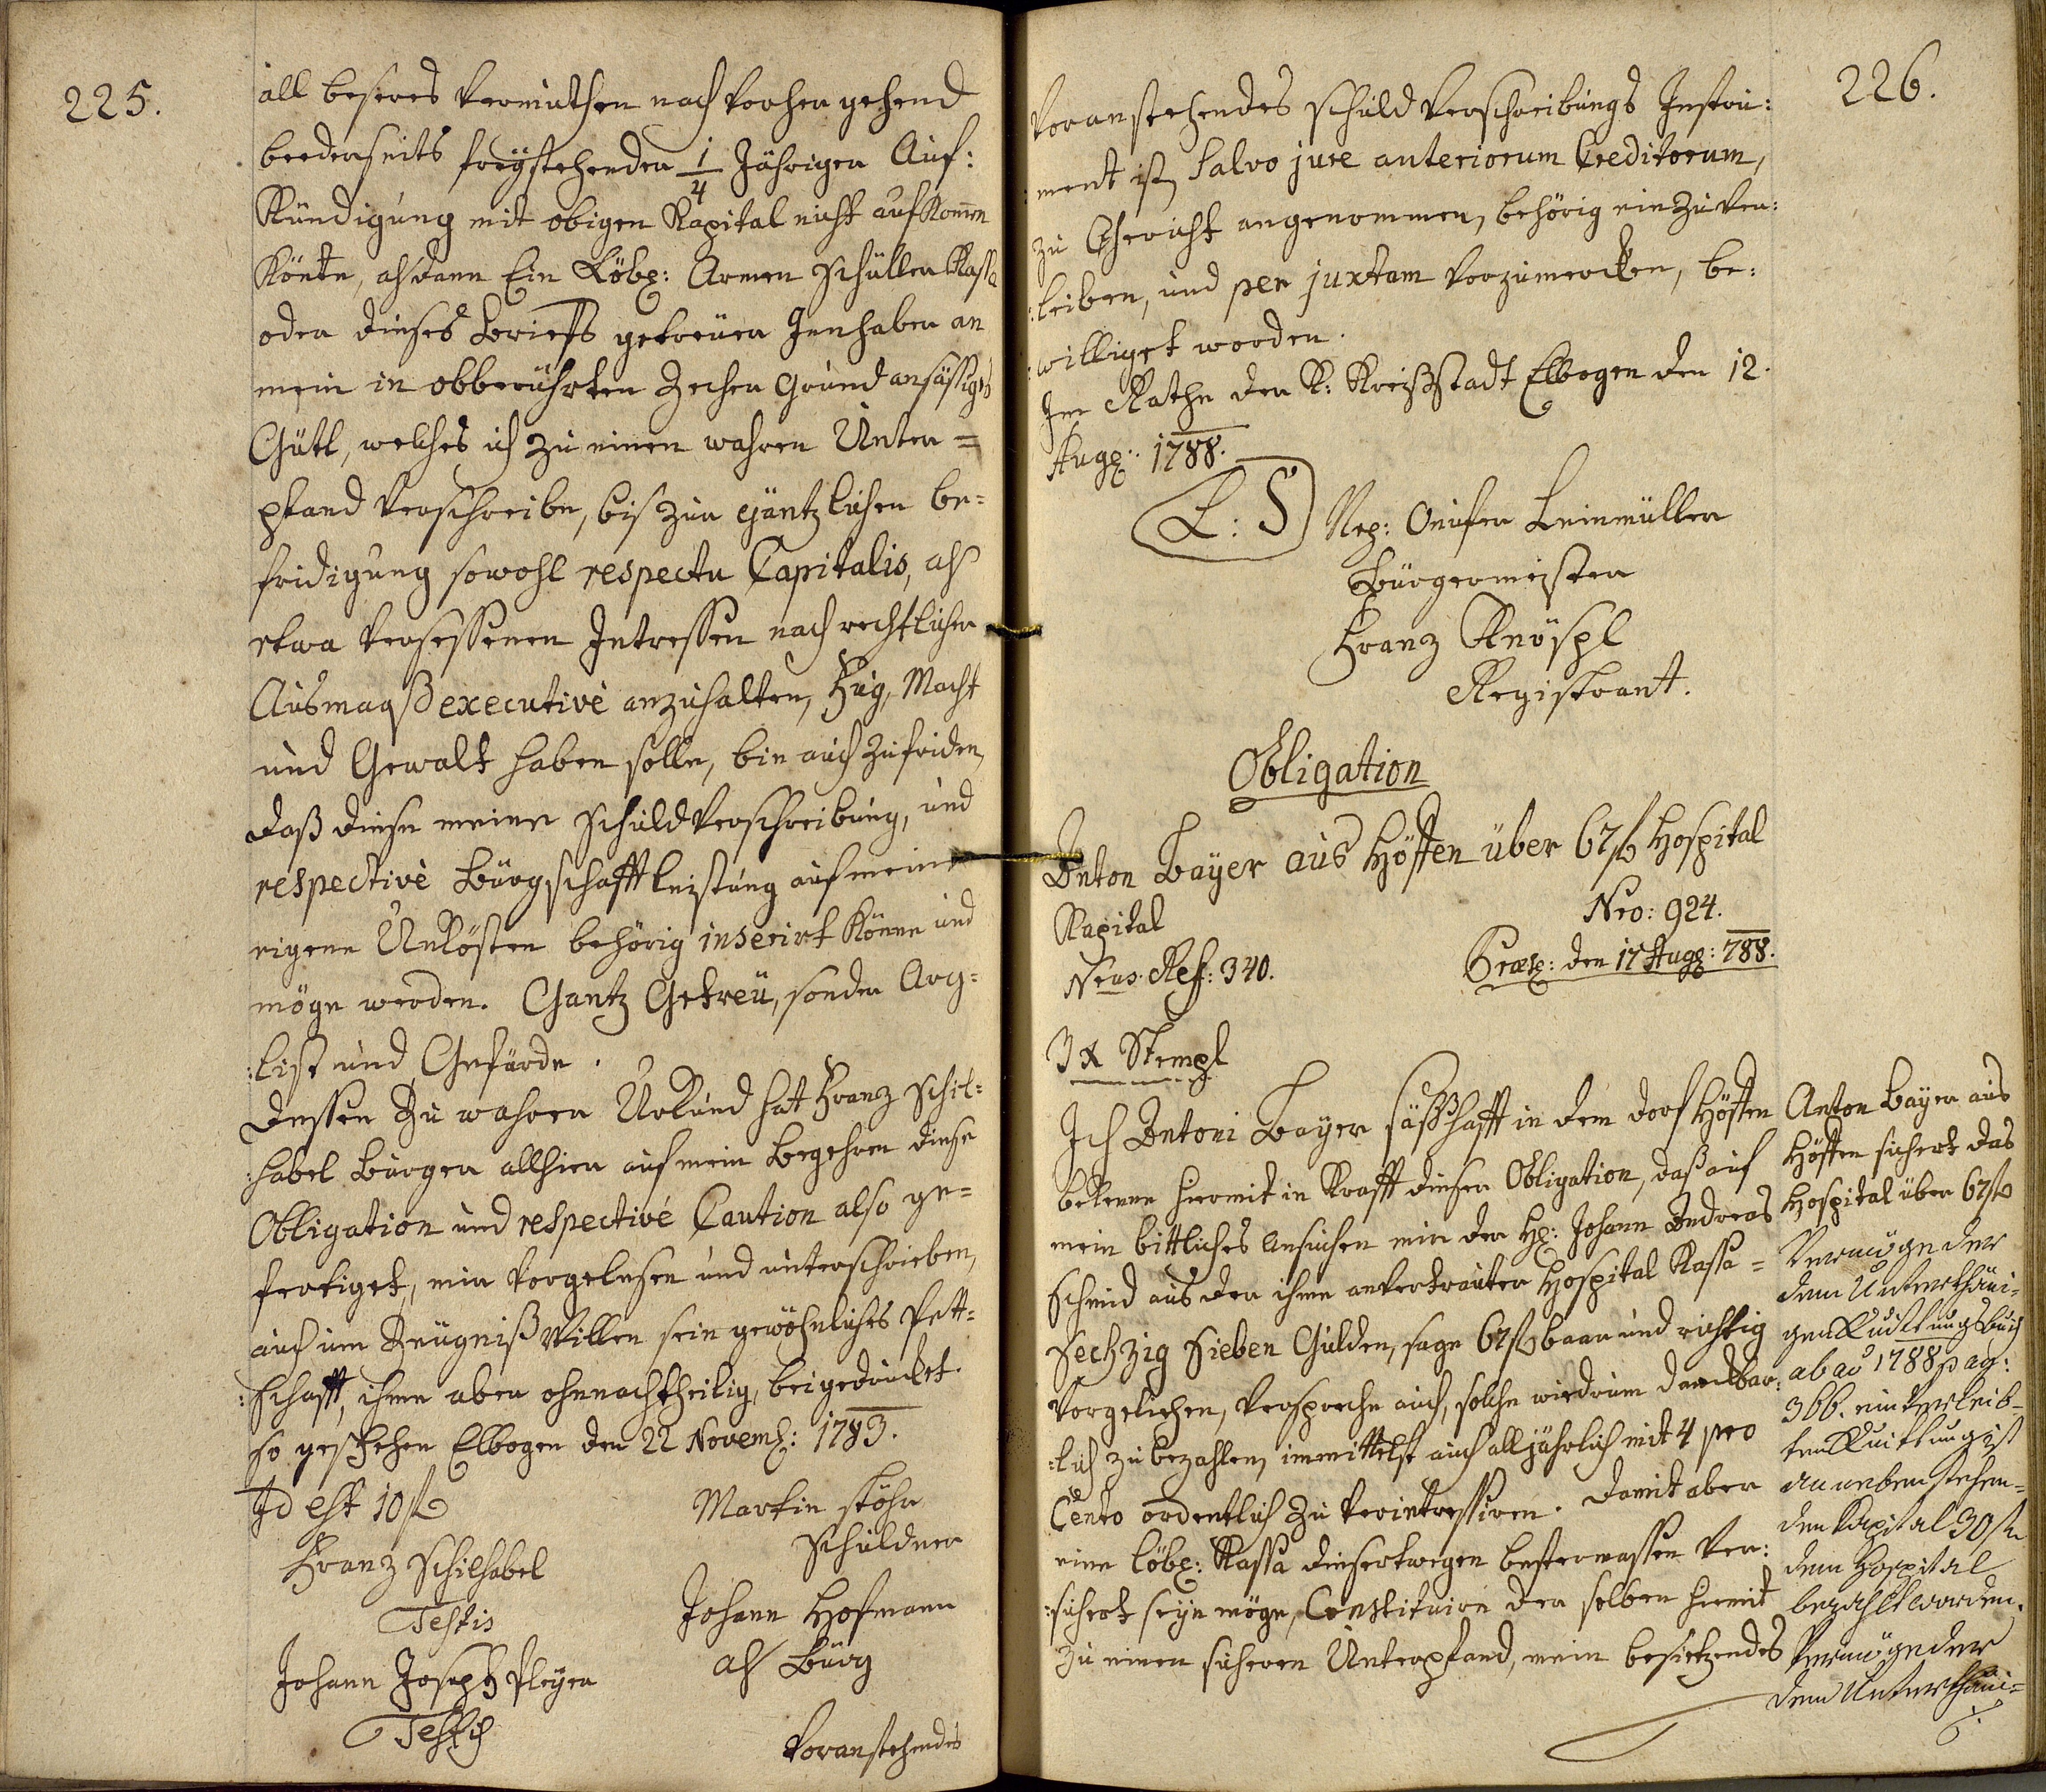 225.
all besseres Vermuthen nach Vorher gehend
beederseits freÿstehender 1/4 Jährigen Auf:
Kündigung mit obigen Kapital nicht aufkom̄en
Könte, alsdann Ein Löbl: Armen Schüller Kassa
oder dieses Brieffs getreuer Innhaber an
mein in obberührten Zechen Grund ansässiges
Gütl, welches ich zu einen wahren Unter=
pfand Verschreibe, bis zur gäntzlichen be=
fridigung sowohl respectu Capitalis, als
etwa Versessenen Intressen nach rechtlicher
Ausmaaß executivè anzuhalten, Fug, Macht
und Gewalt haben solle, bin auch zufriden,
daß diese meine Schuld Verschreibung, und
respectivè Bürgschafft leistung auf meine
eigene Unkösten behörig inserirt Könne und
möge werden. Gantz Getreü, sonder Arg=
:list und Gefärde.
Dessen Zu wahrer Urkund hat Franz Schil=
:habel Burger allhier auf mein Begehren diese
Obligation und respectivé Caution also ge=
fertiget, mir Vorgelesen und unterschrieben,
auch um Zeügniß Willen sein gewöhnliches Pett=
:schafft, ihme aber ohnnachtheilig, beigedrucket.
so geschehen Elbogen den 22 Novemb: 1783.
Id est 10 f
Martin Stöhr
Schuldner
Franz Schilhabel
Testis
Johann Hofmann
als Bürg
Johann Joseph Pleÿer
Testis
Voranstehendes
226.
Voranstehendes Schuld Verschreibungs Instru:
:ment ist, Salvo jure anteriorum Creditorum,
zu Gericht angenommen, behörig einzuver:
:leiben, und per juxtam Vorzumercken, be:
:williget worden.
Im Rathe der K: Kreißstadt Elbogen den 12.
Aug: 1788.
L: S
Nep: Leinmüller
Bürgermeister
Franz Knöspl
Registrant.
Obligation
Anton Baÿer aus Höffen über 67 f Hospital
Kapital
Nro: 924.
Nrus. Ref: 340.
Praes: den 17 Aug: 788.
3 x Stempl
Ich Antoni Baÿer säßhafft in dem dorf Höffen
bekenne hiermit in Krafft dieser Obligation, daß auf
mein bittliches Ansuchen mir der H: Johann Andreas
Schmid aus der ihme anvertrauter Hospital Kassa=
Sechzig Sieben Gulden, sage 67 f baar und richtig
Vorgeliehen, Verspreche auch, solche wiedrum danckbar:
:lich zu bezahlen, immittelst auch alljährlich mit 4 pro
Cento ordentlich zu Verintressiren. Damit aber
eine löbl: Kassa diesertwegen bestermassen Ver:
:sichert seÿn möge, Constituire der selben hiemit
zu einen sicheren Unterpfand, mein besietzendes
Anton Baÿer aus
Höffen sichert das
Hospital über 67 f
Vermöge der
dem Unterthäni-
gen Quittungsbuch
ab a͞o 1788 pag:
366. einverleib-
ten Quittung ist
an neben stehen-
den Kapital 30 f
dem Hospital
bezahlt worden.
Vermöge der
dem Unterthäni=